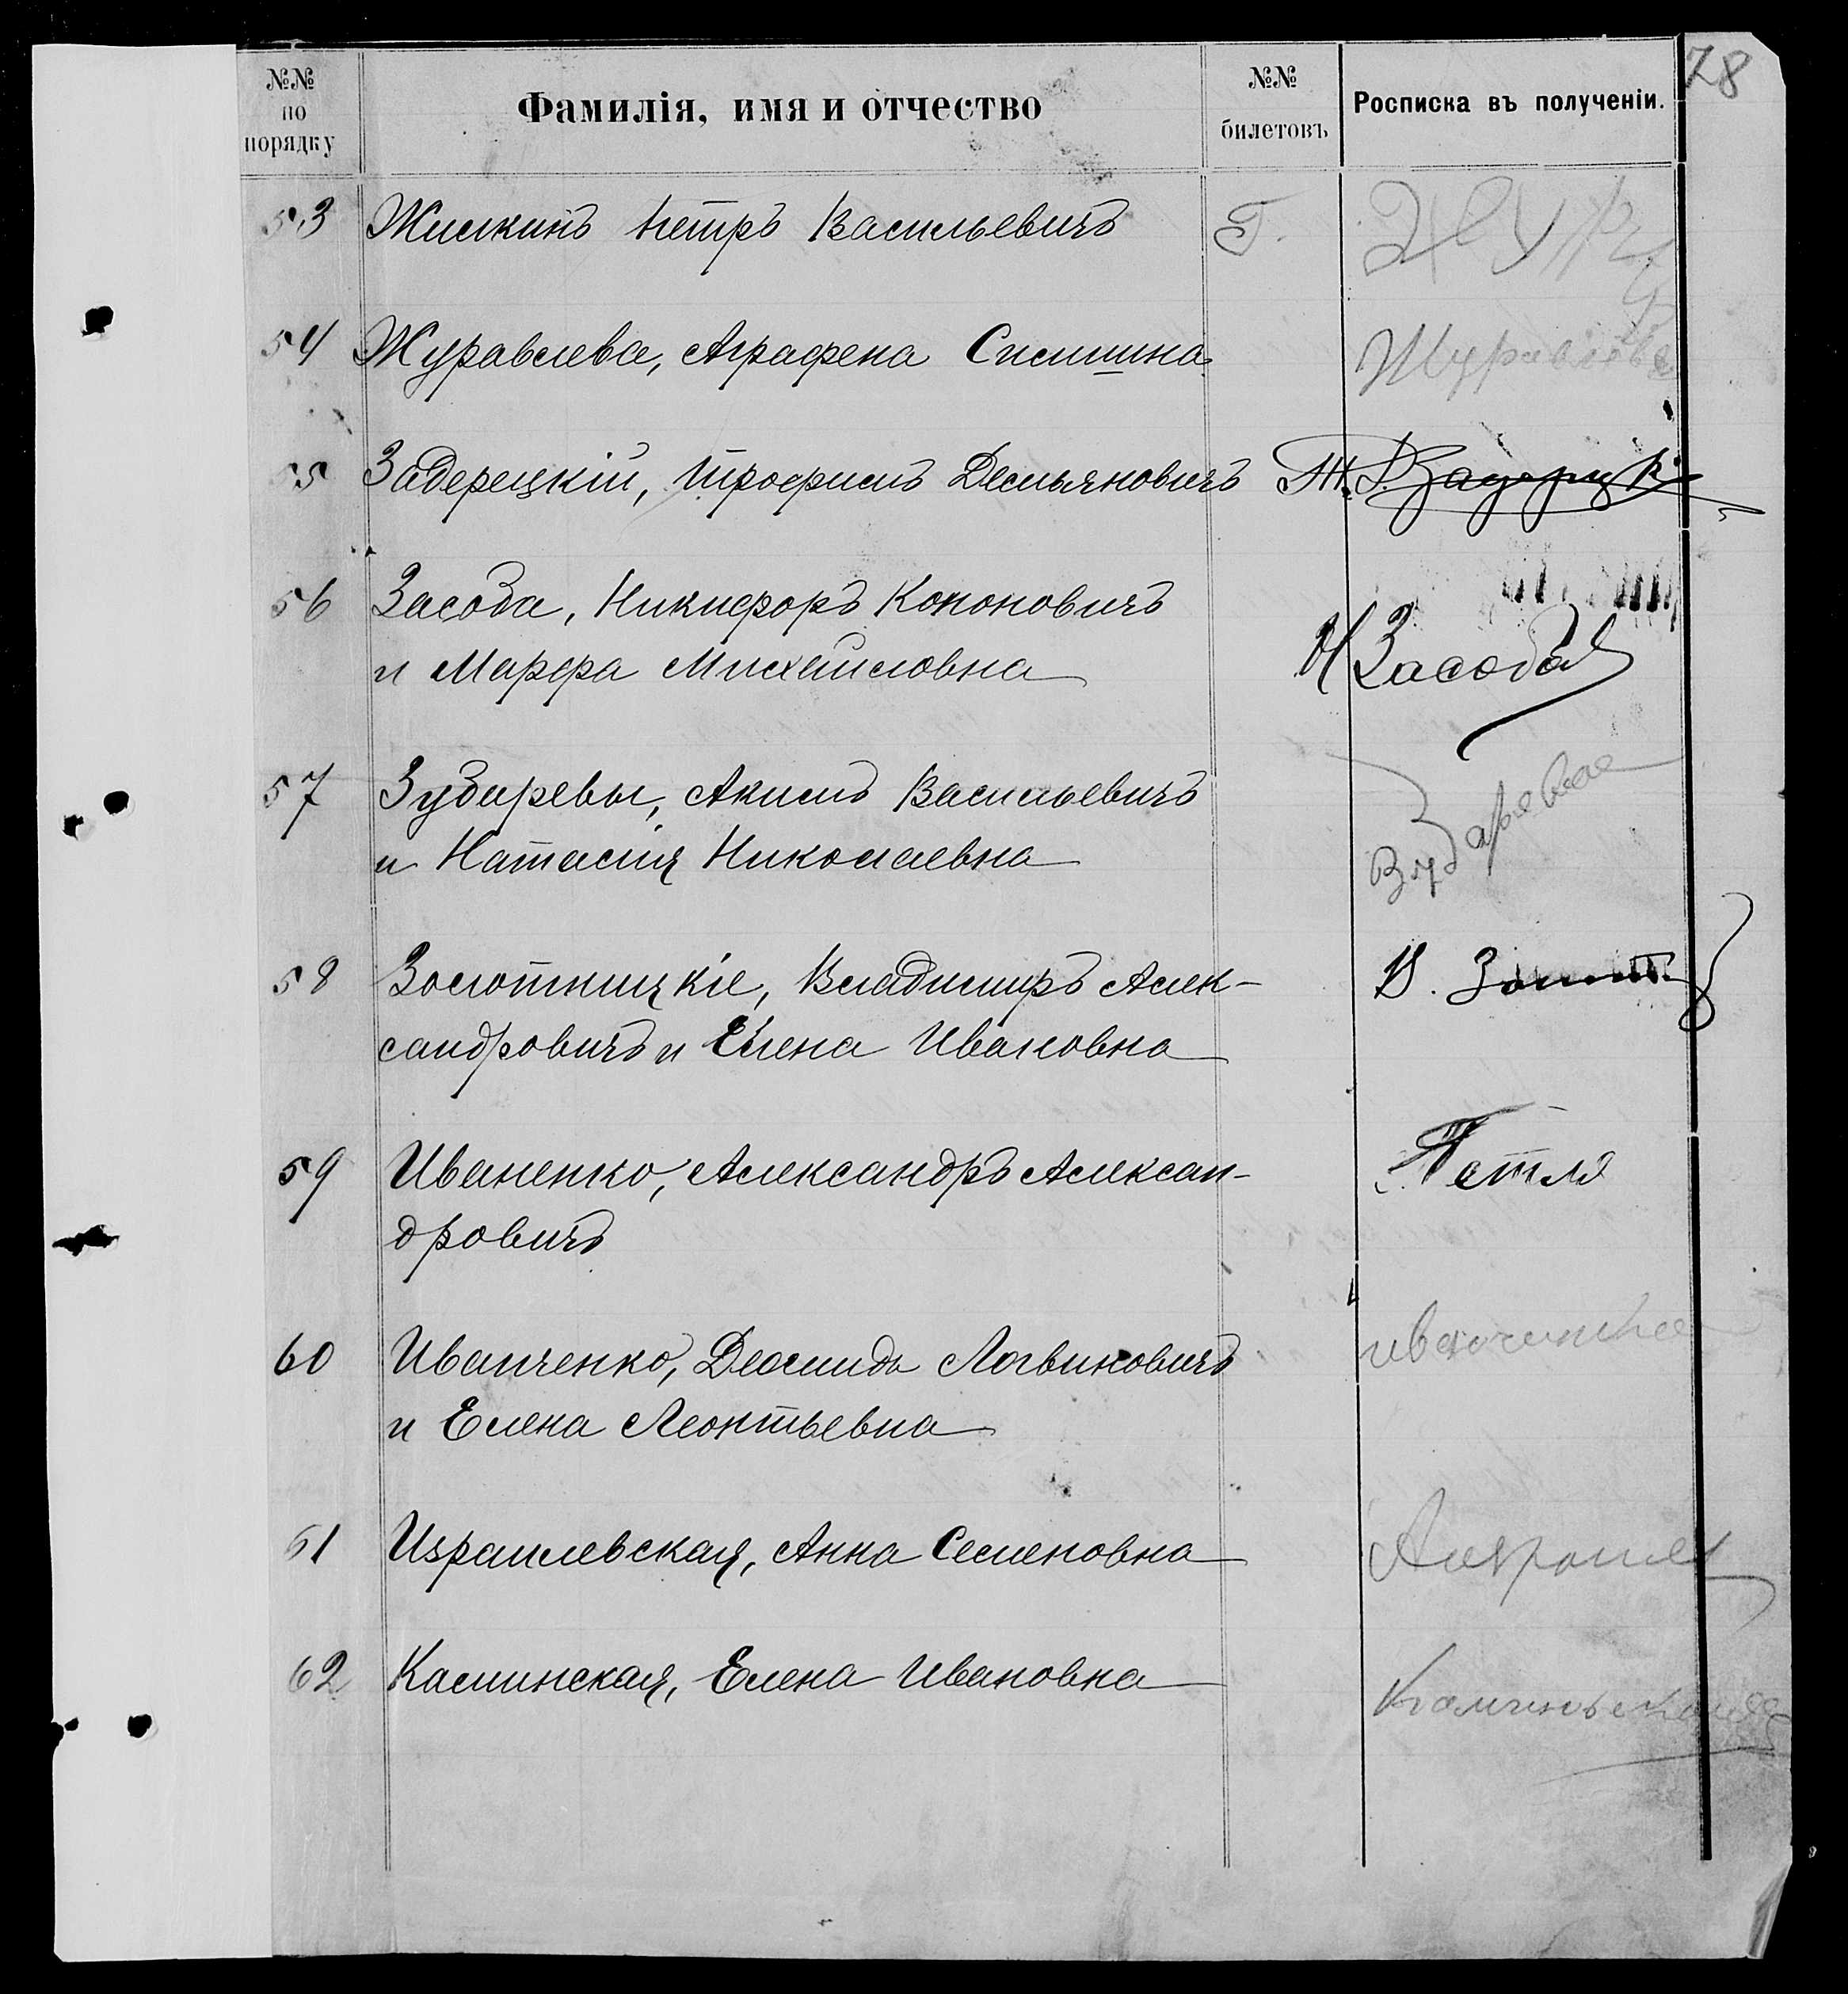 78
№№ по порядку
Фамилія, имя и отчество
№№ билетовъ
Росписка въ полученіи.
53 Жилкинъ Петръ Васильевичъ Г. Жур
54 Журавлева, Аграфена Журавлева
55 Задерецкій, Трофимъ Демьяновичъ Т. Задерецкі
56 Засоба, Никифоръ Кононовичъ
и Марфа Михайловна Н Засоба
57 Зубаревы, Акимъ Васильевичъ
и Наталія Николаевна Зубарева
58 Золотницкіе, Владимиръ Алек-
сандровичъ и Елена Ивановна В. Золот
59 Иваненко, Александръ Алексан-
дровичъ Петля
60 Иванченко, Деомидъ Логвиновичъ
и Елена Леонтьевна
61 Израилевская, Анна Семеновна
62 Каминская, Елена Ивановна Каминьская